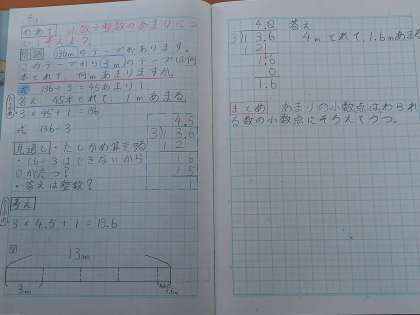 めあて 小数÷整数のあまりについて考えよう。
問題 13.6mのテープがあります。
このテープから3mのテープは何
本とれて、何mあまりますか。
式 136÷3=45あまり1
答え 45本とれて、1mあまる
3×45+1=136
式 13.6÷3
見通し ・たしかめ算をする
・1.6÷3はできないから
0がたつ?
・答えは整数?
4.5
3)13.6
12
1 6
1 5
1
考え
3×4.5+1=13.6
図
13m
3m
1.6m
4.0 答え
3)13.6 4mとれて、1.6mあまる
12
1.6
0
1.6
まとめ あまりの小数点はわられ
る数の小数点にそろえてうつ。